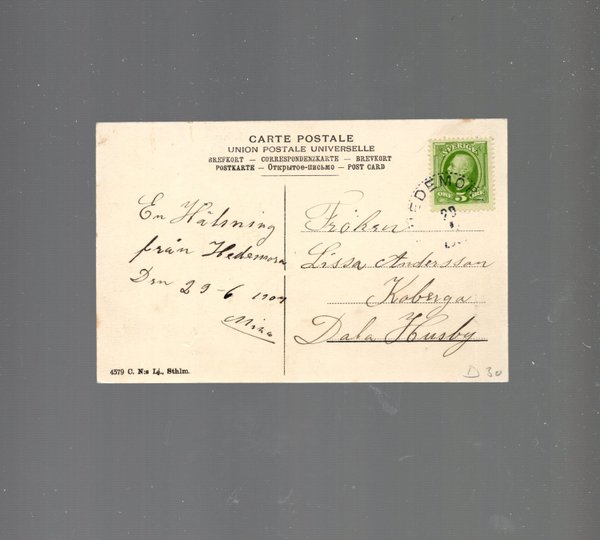 CARTE POSTALE
UNION POSTALE UNIVERSELLE
BREFKORT — CORRESPONDENZKARTE — BREVKORT
POSTKARTE — Открытое-письмо — POST CARD
SVERIGE
ÖRE 5 ÖRE
HEDEMORA
29
En Hälsning
från Hedemora
Den 29-6
Fröken
Lissa Andersson
Koberga
Dala Husby
4579 C. N:s Lj., Sthlm.
D 30